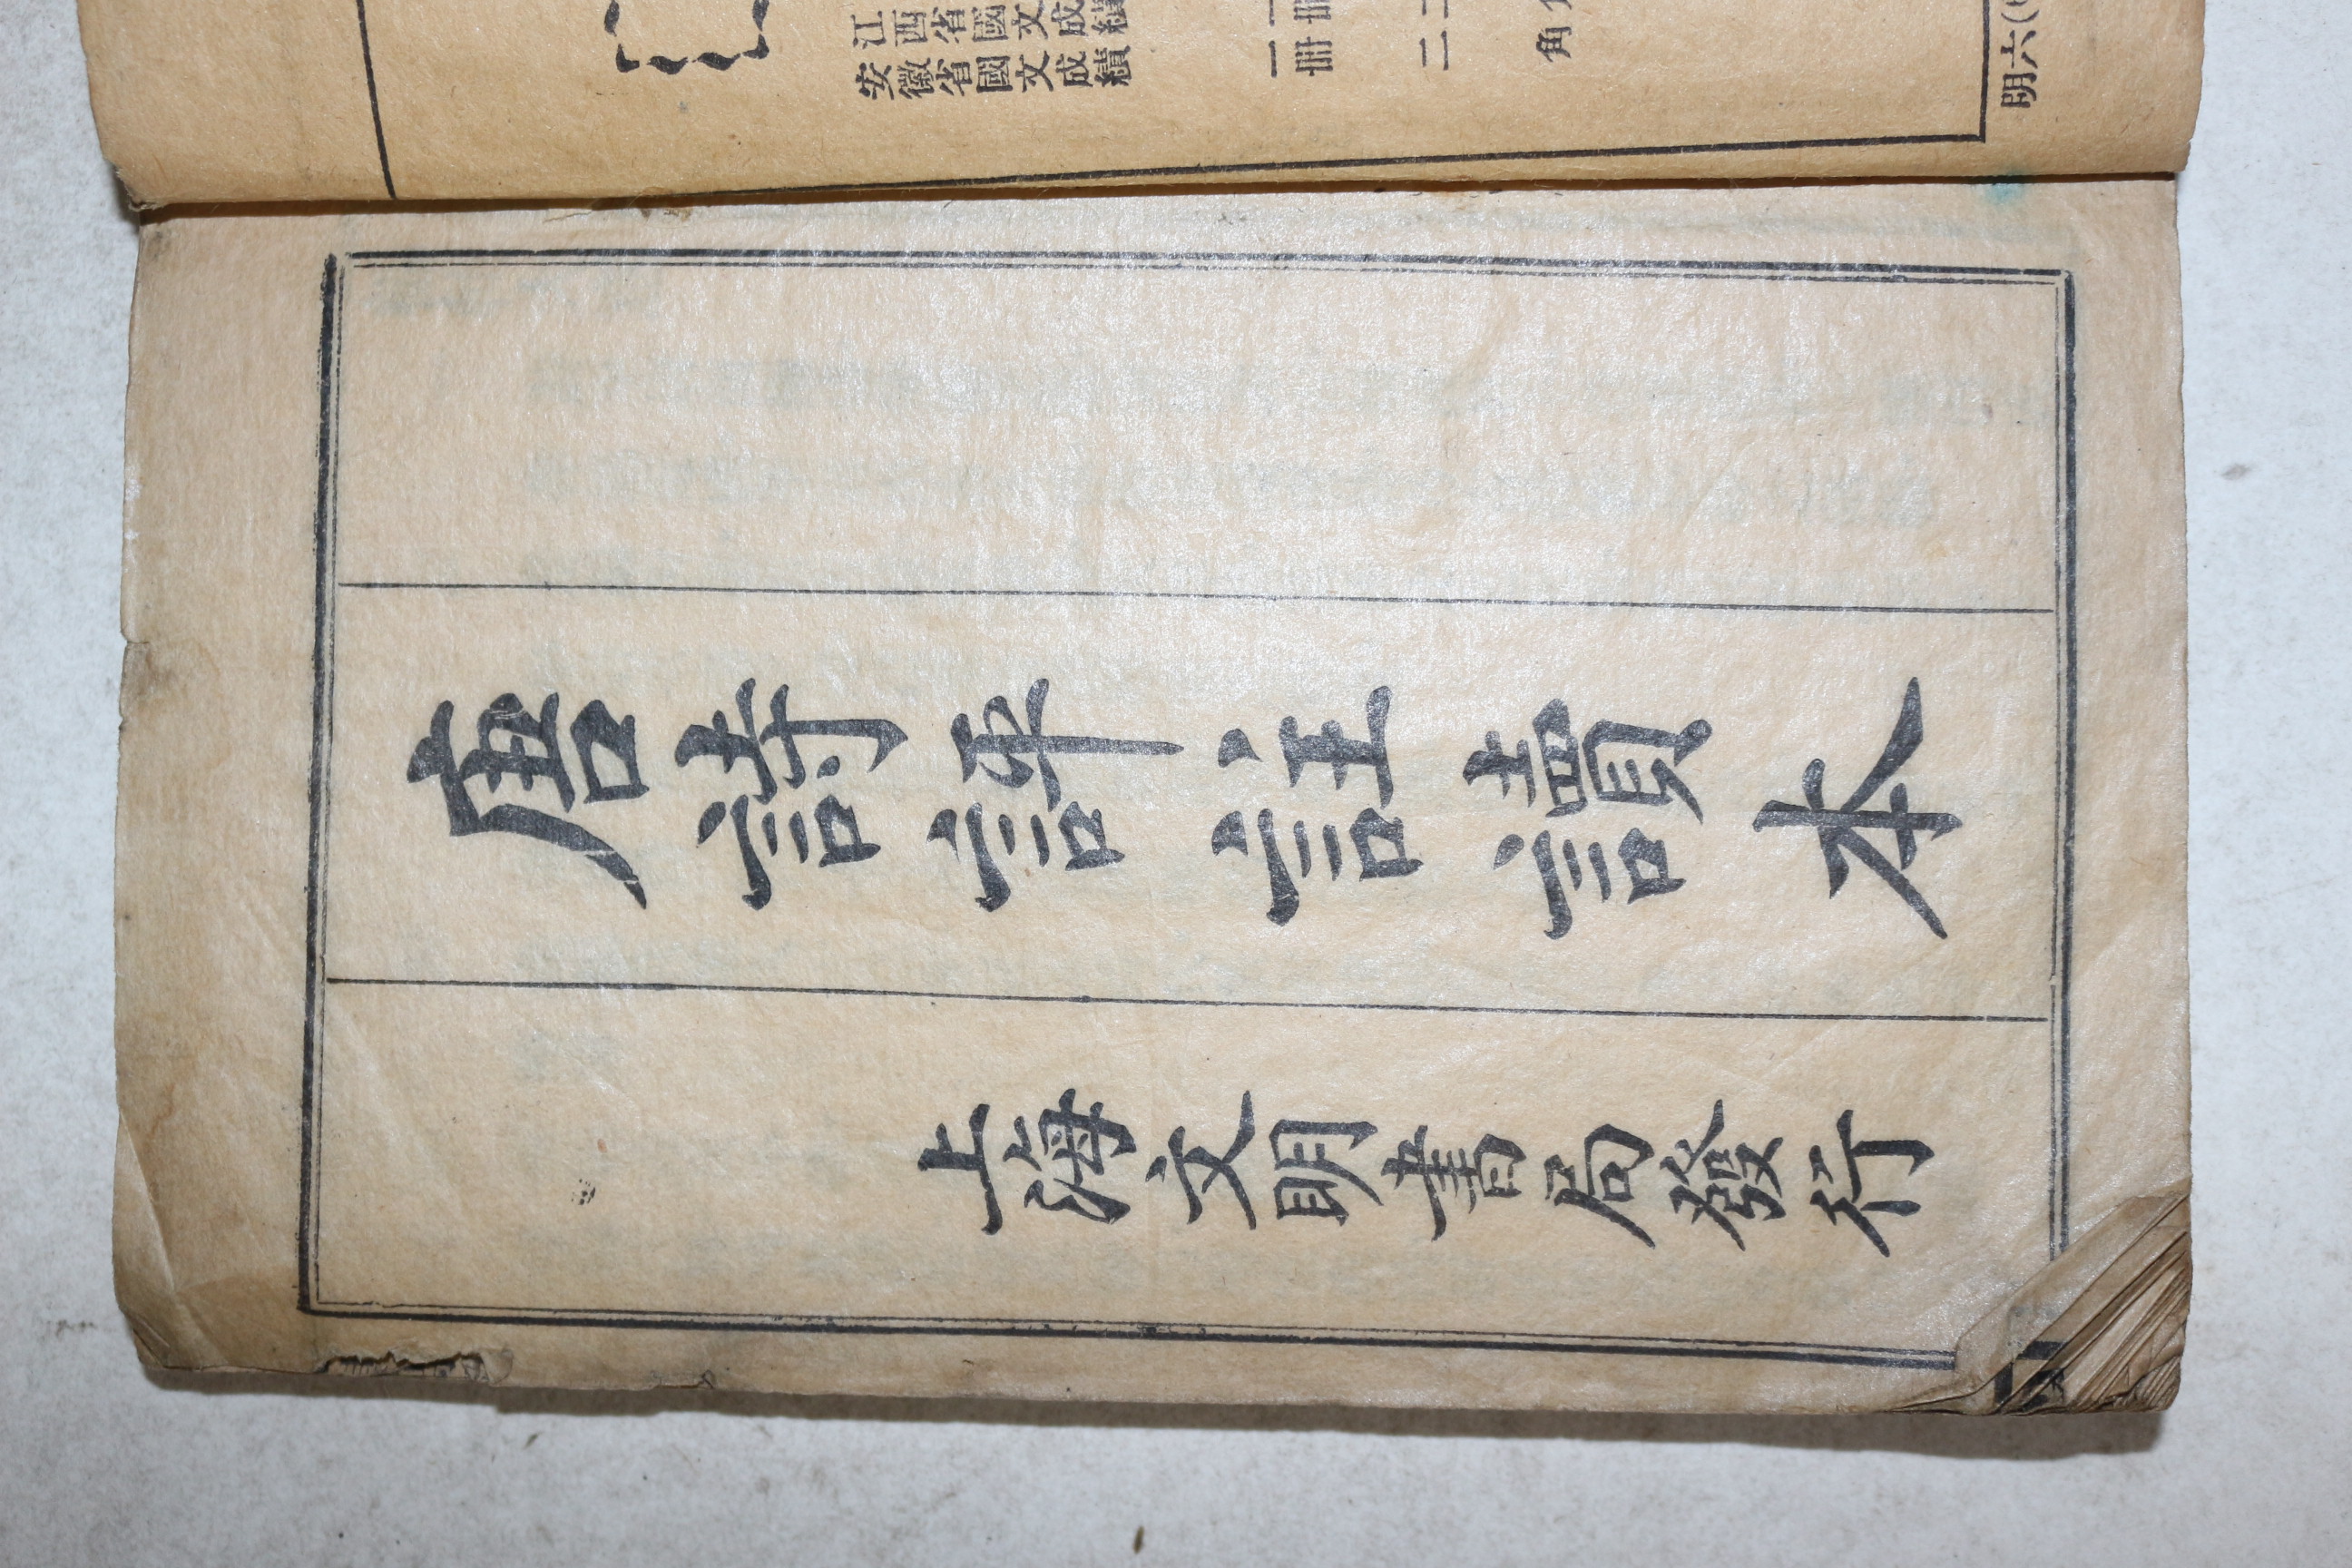 江西省國文成績 一冊
安徽省國文成績 一冊 二 角
明六(
唐詩評註讀本
上海文明書局發行